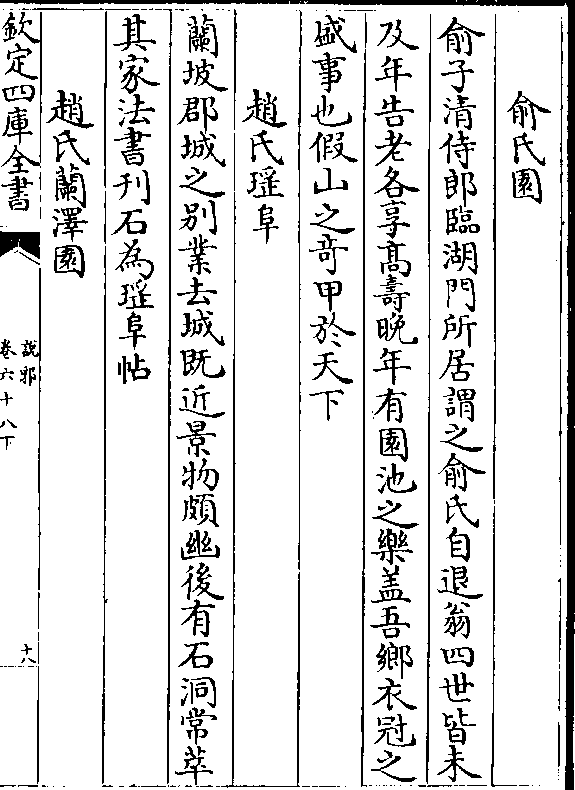 俞氏園
俞子清侍郎臨湖門所居謂之俞氏自退翁四世皆未
及年告老各享髙壽晚年有園池之樂盖吾鄉衣冠之
盛事也假山之竒甲於天下
趙氏瑶阜
蘭坡郡城之别業去城既近景物頗幽後有石洞常萃
其家法書刋石為瑶阜帖
趙氏蘭澤園
欽定四庫全書
說郛
卷六十八下
十八